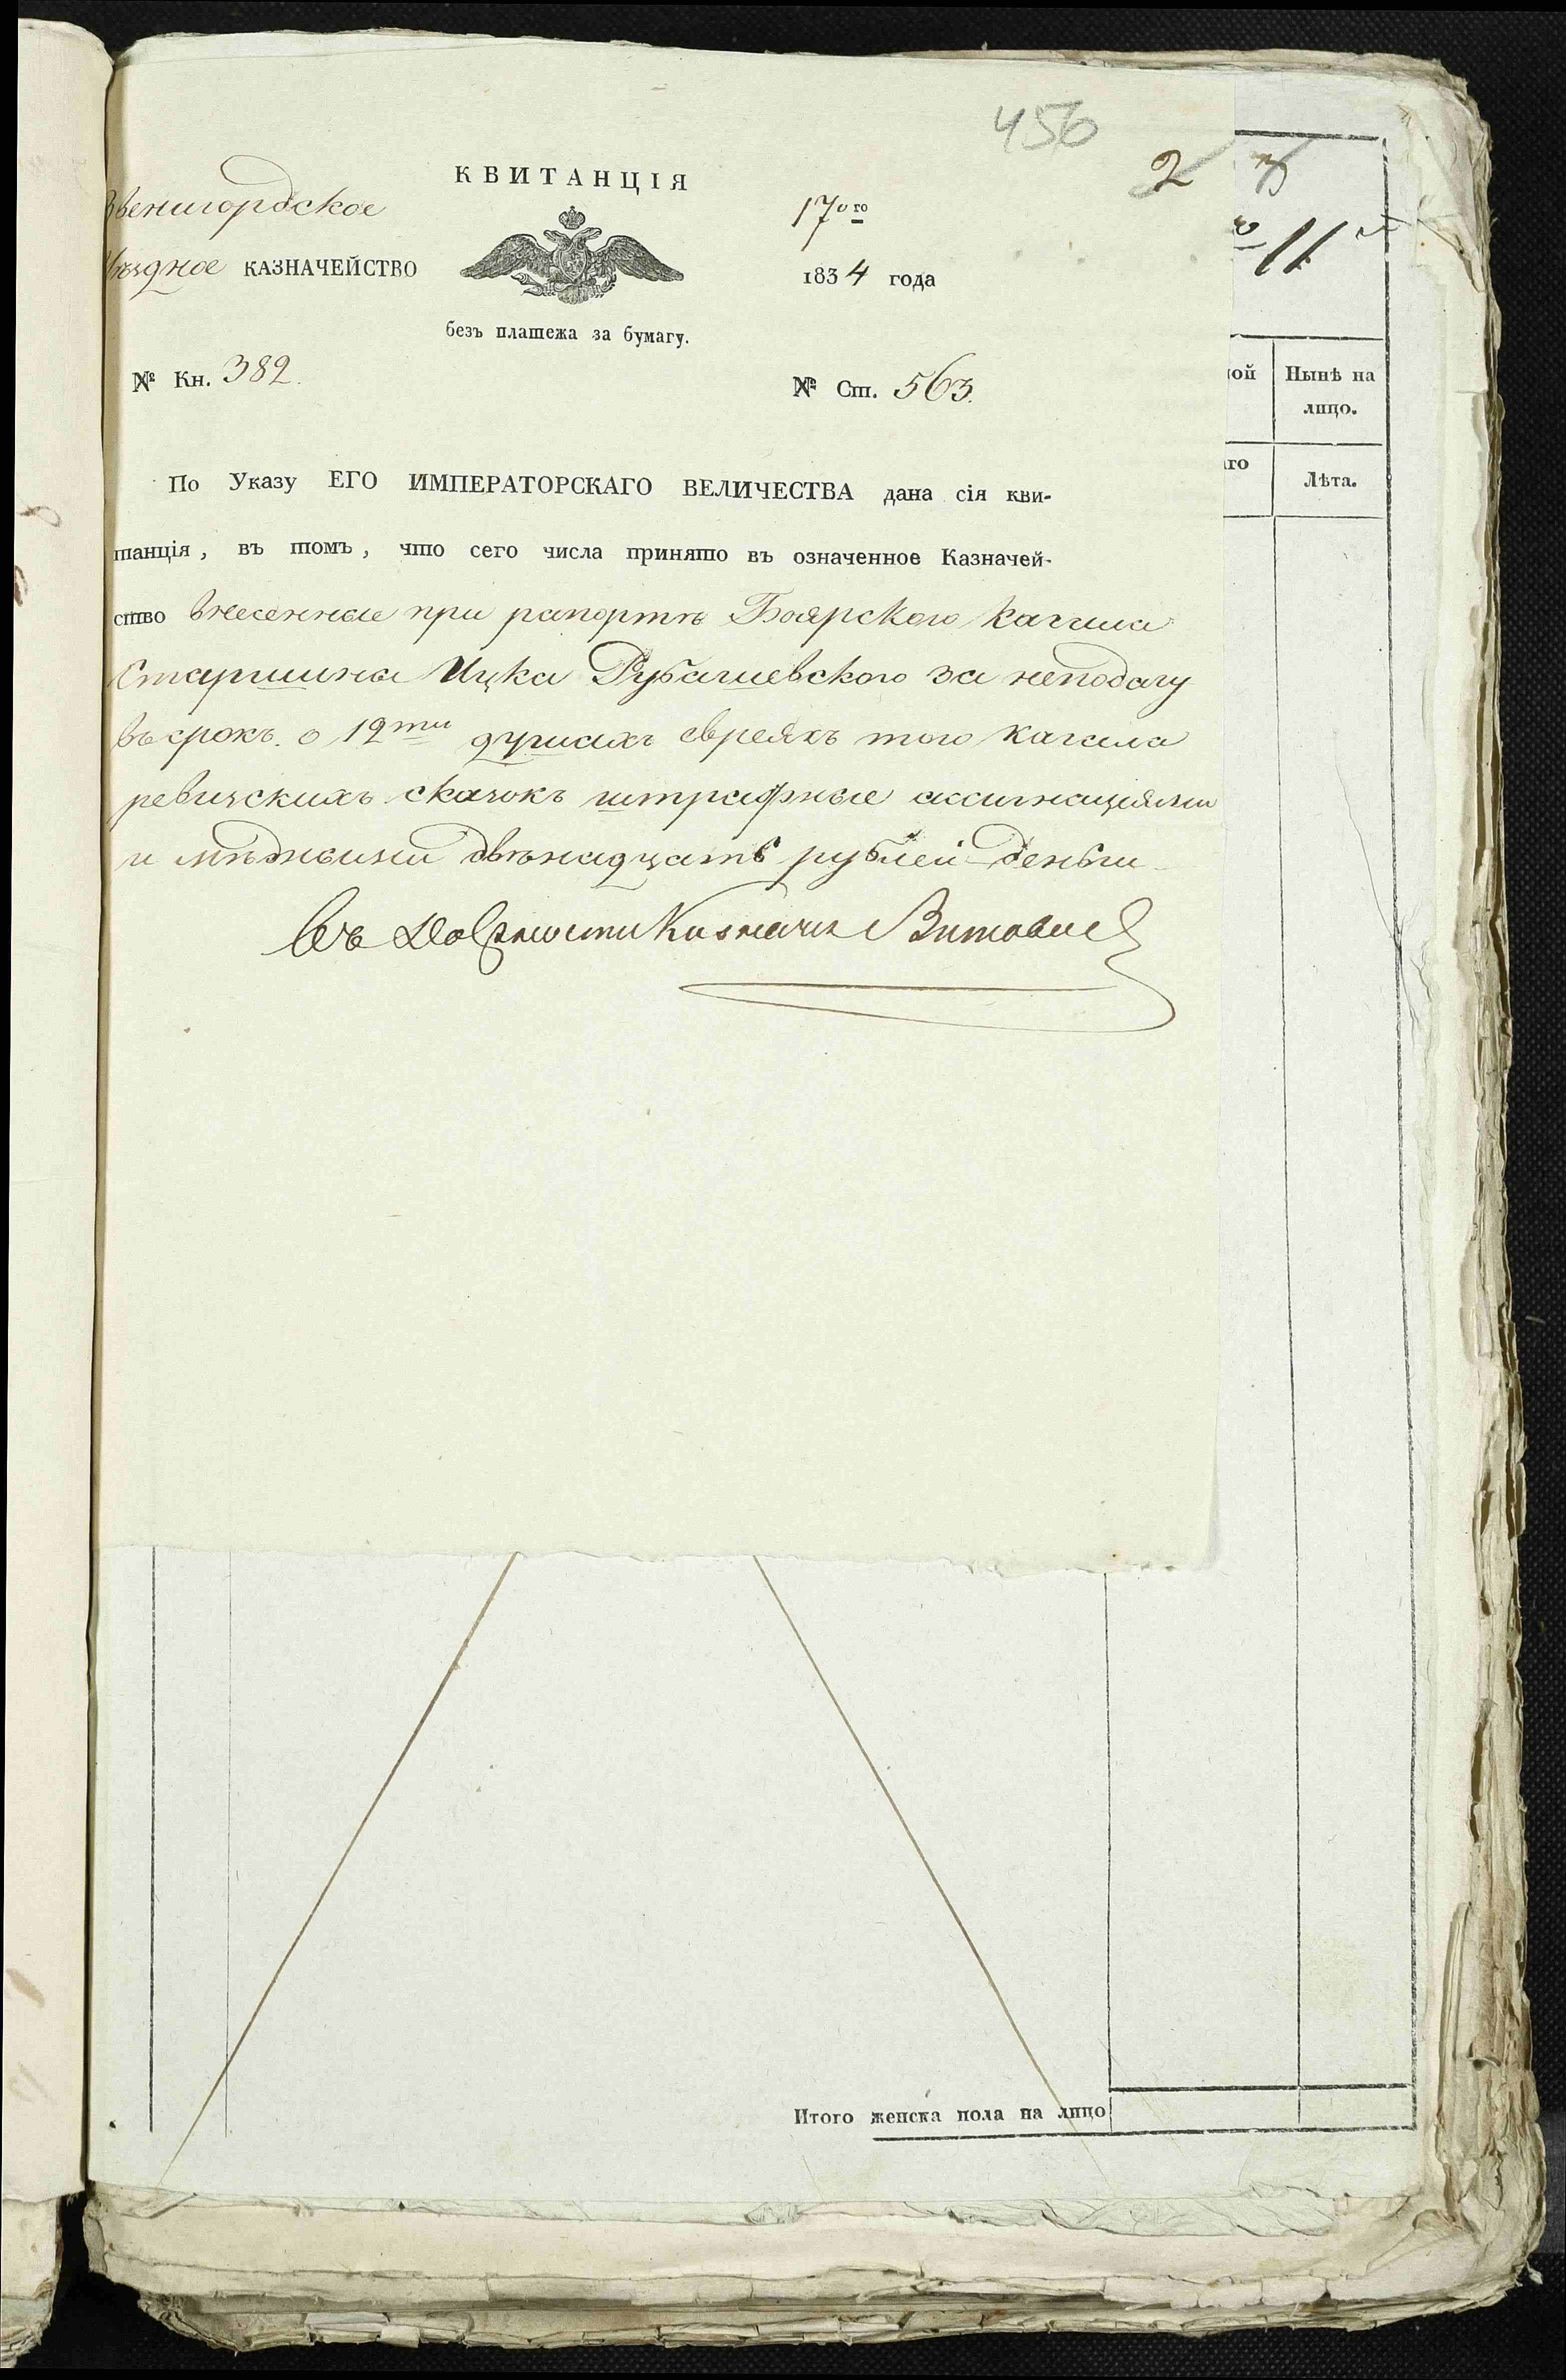 456
КВИТАНЦІЯ
2
Звенигородское
17ого
11
уѣздное КАЗНАЧЕЙСТВО
1834 года
безъ платежа за бумагу.
№ Кн. 382.
№ Ст. 563.
ной
Нынѣ на
лицо.
По Указу ЕГО ИМПЕРАТОРСКАГО ВЕЛИЧЕСТВА дана сія кви-
Лѣта.
танція, въ томъ, что сего числа принято въ означенное Казначей-
ство внесенные при рапортѣ Боярского кагала
Старшина Ицка Рубашевского за неподачу
въ срокъ о 12ти душахъ евреяхъ того кагала
ревизскихъ сказокъ штрафные ассигнаціями
и мѣдными двѣнадцать рублей деньги
Въ Должности Казначея
Итого женска пола на лицо